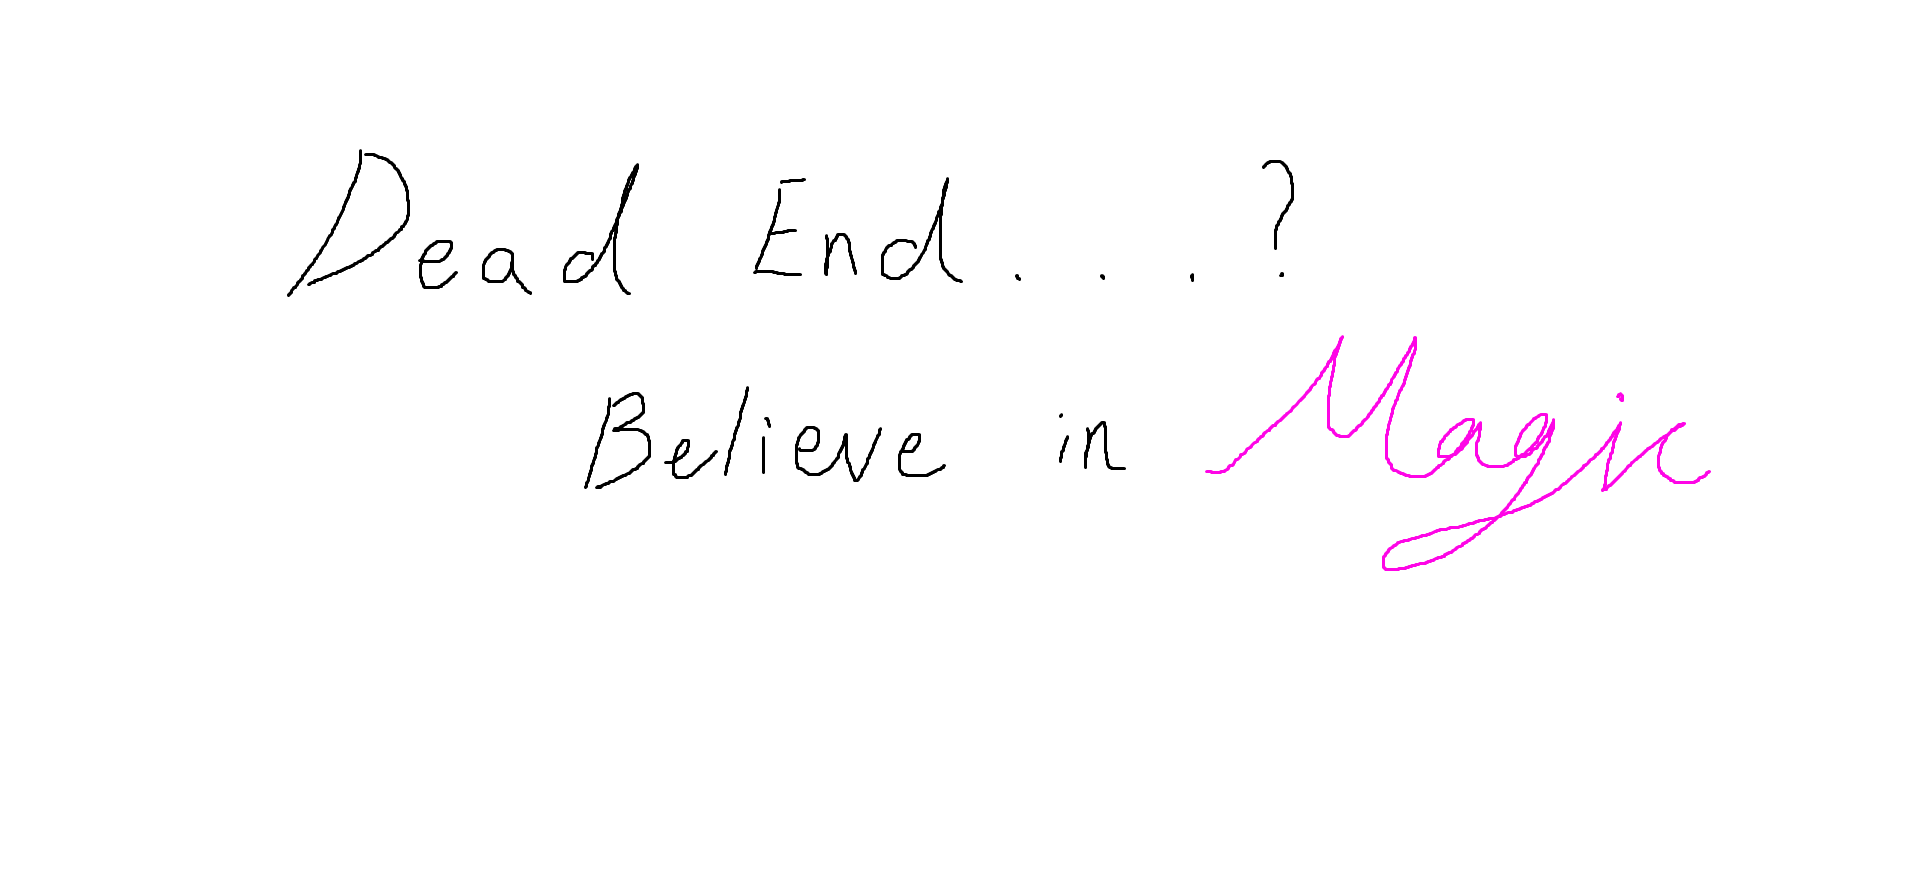 Dead End...?
Believe in Magic